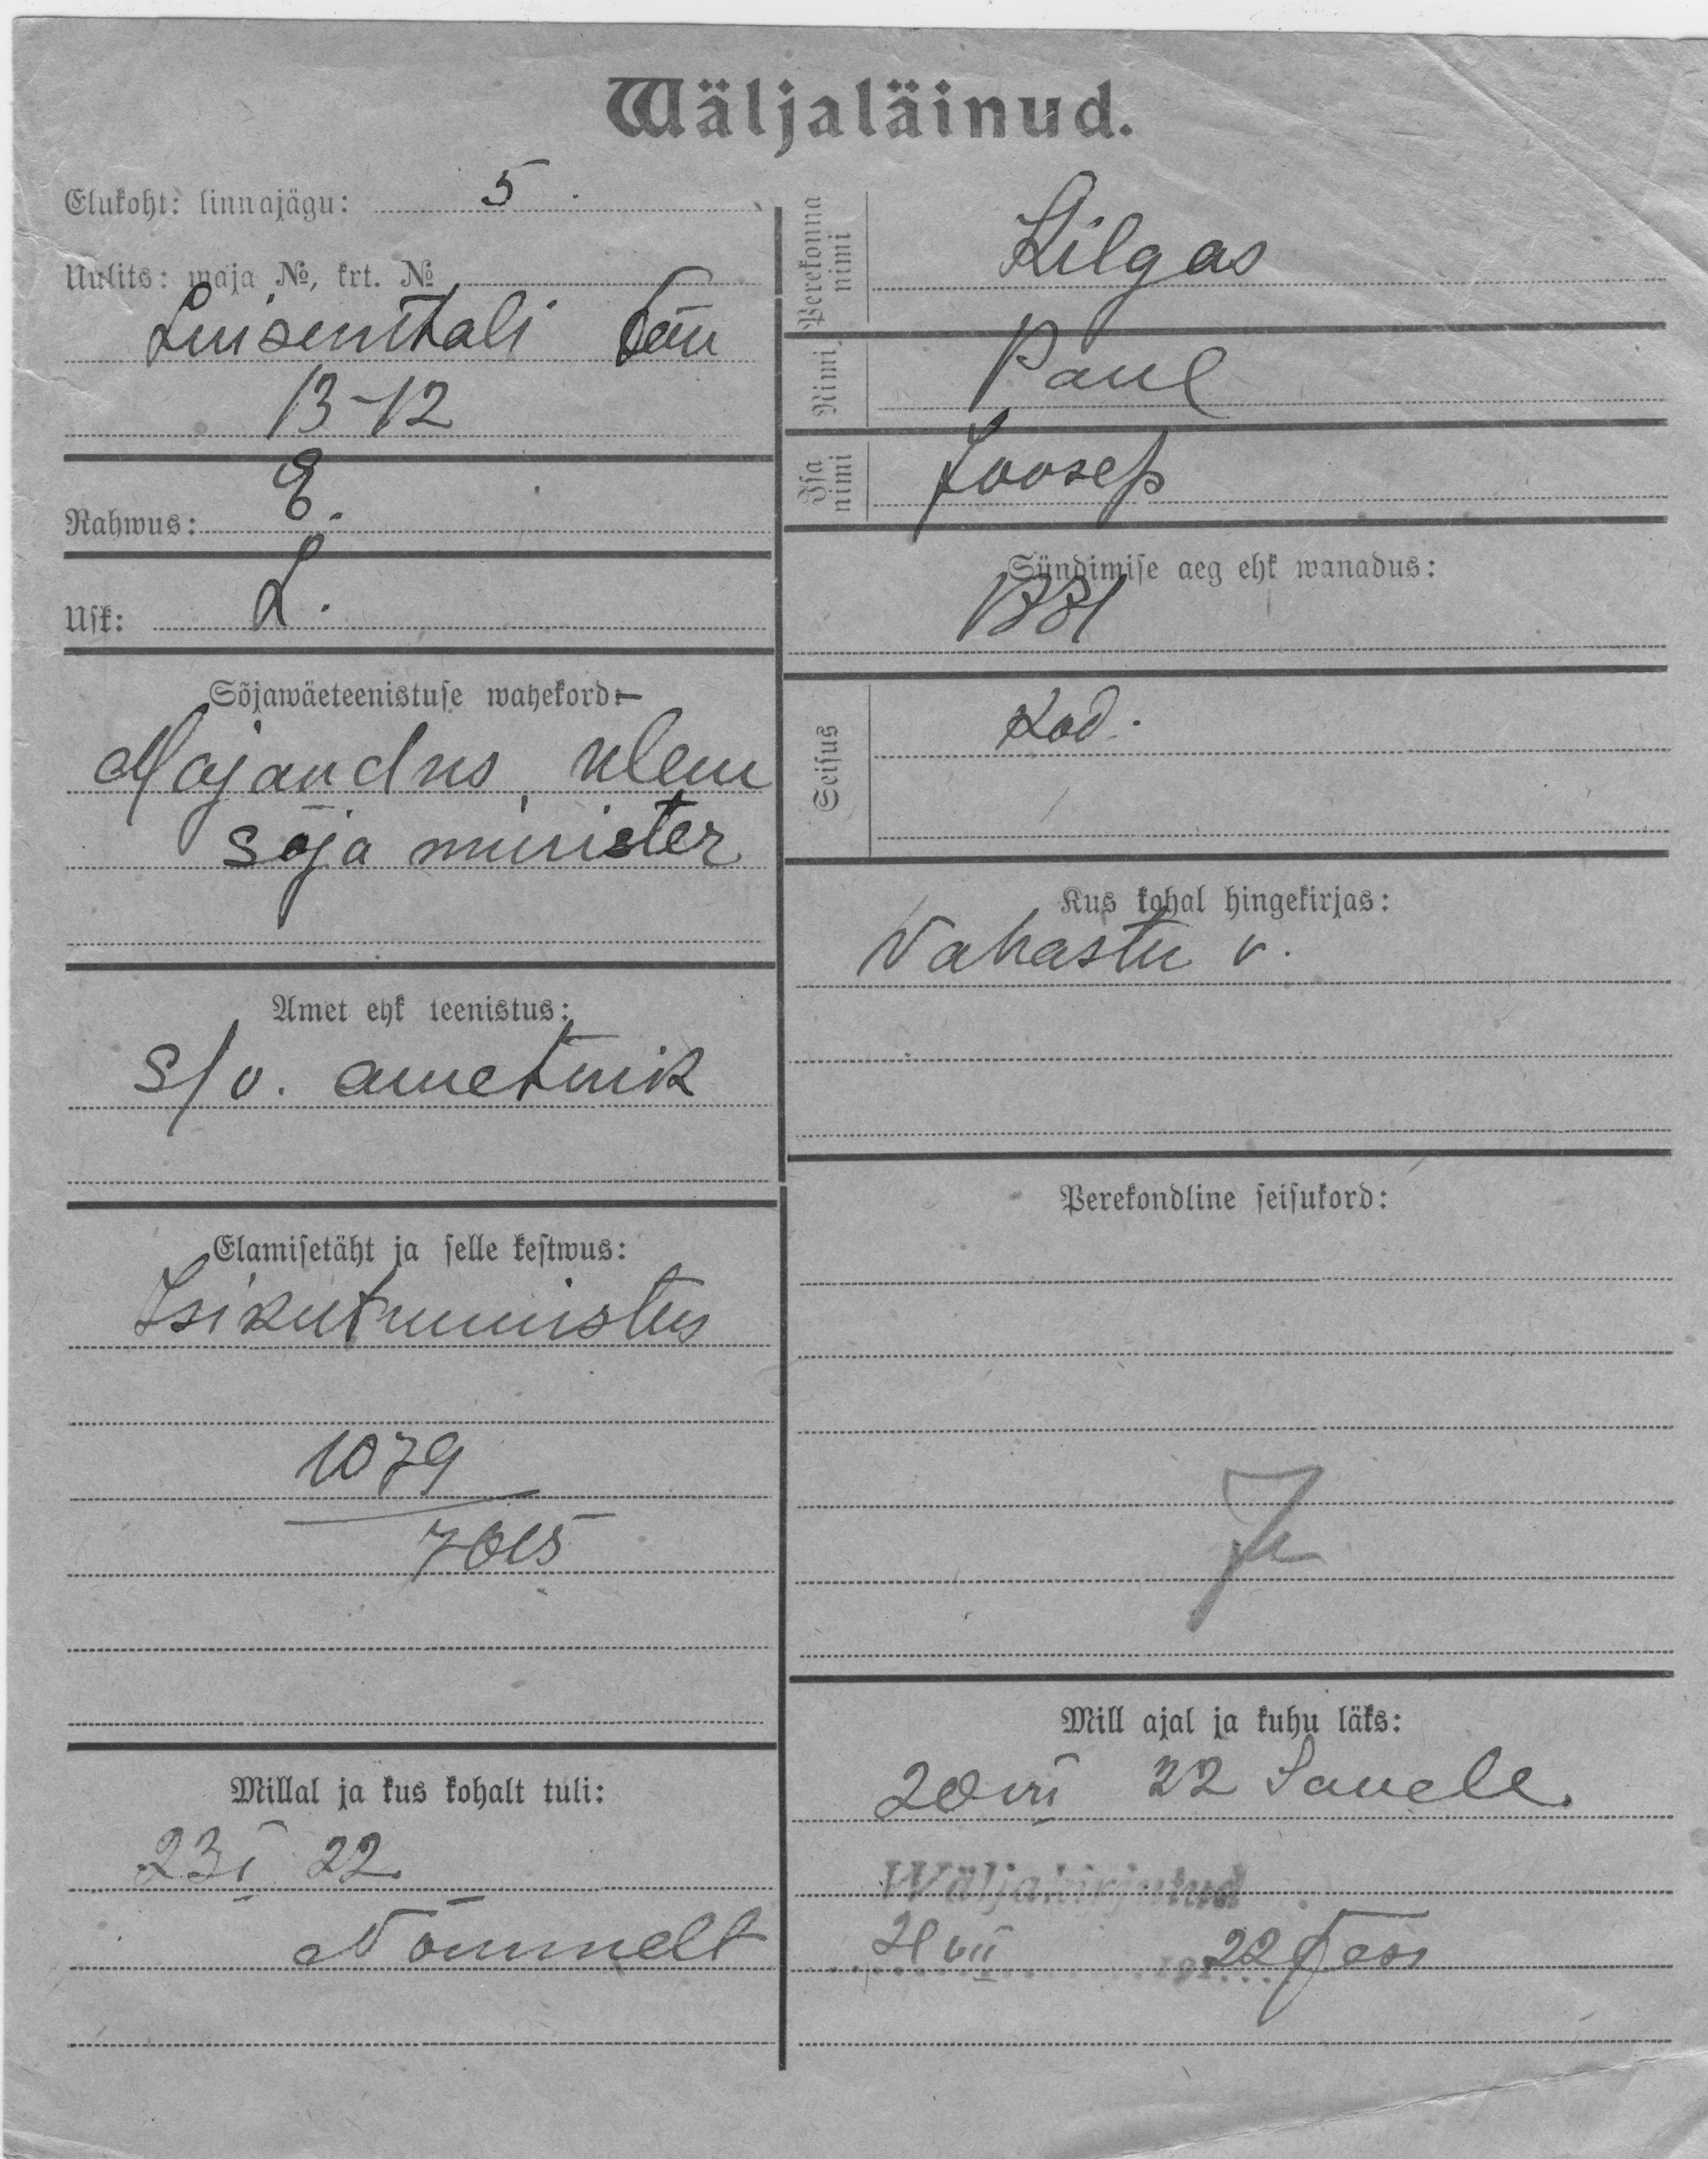 Wäljaläinud.
Elukoht: linnajägu: 5
Uulits: maja №, krt. №
Luisenthali tän
13-12
Rahwus: E.
Usk: L.
Sõjawäeteenistuse wahekord:
Majandus ülem
sõja minister
Amet ehk teenistus:
S/v. ametnik
Elamisetäht ja selle kestwus:
Isikutunnistus
1079
7015
Millal ja kus kohalt tuli:
23 I 22
Nõmmelt
Perekonna nimi Kilgas
Nimi Paul
Isa nimi Joosep
Sündimise aeg ehk wanadus:
1881
Seisus kod.
Kus kohal hingekirjas:
Vahastu v.
Perekondline seisukord:
Mill ajal ja kuhu läks:
20 VII 22 Sauele.
Wäljakirjutud
21 VII 1922